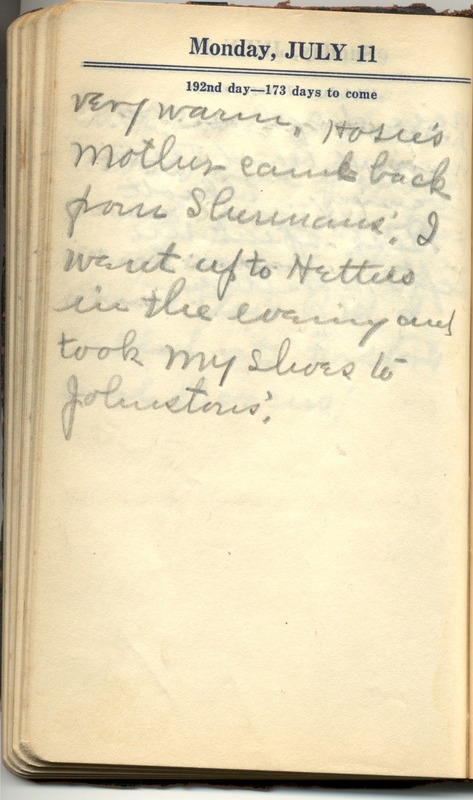 Monday, JULY 11
192nd day—173 days to come
very warm. Hosie's
Mother came back
from Shermans'. I
went up to Netties
in the evening and
took my shoes to
Johnstons'.